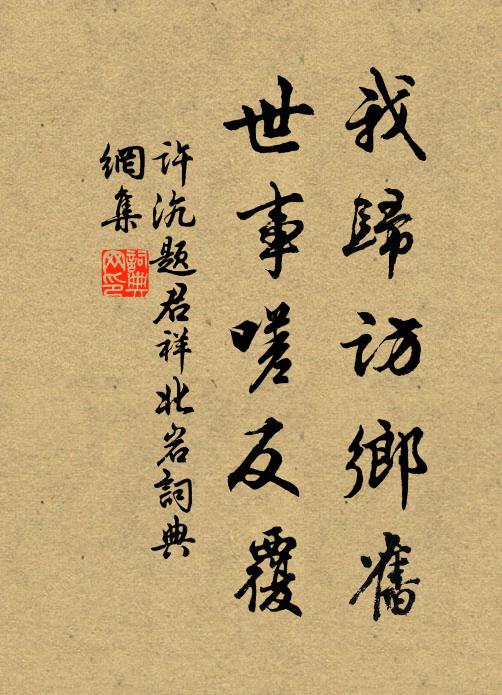 我歸訪鄉舊
世事嗟反覆
許沆題君祥北岩詞典
網集
詞典網印